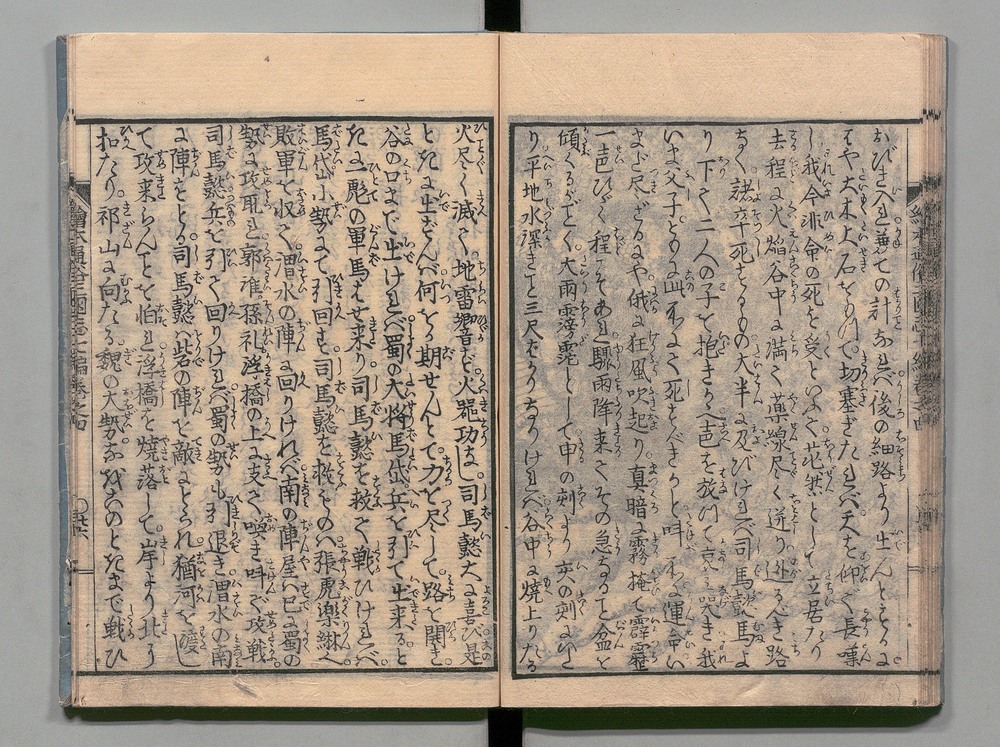 おびき入し兼ての計なれバ後の細路より出んとするに
はや大木大石をもつて切塞ぎたれバ天を仰て長嘆
し我今非命の死を受といふて茫然として立居たり
去程に火焔谷中に満て薬線尽く迸り逃るべき路
なく諸卒死するもの大半に及びけれバ司馬懿馬よ
り下て二人の子を抱きかへ声を放つて哀み哭き我
いま父子ともに皿不よて死すべきかと叫
まよ尺どるや俄に狂風吹起り真暗に霧掩て霹靂
一声ひゞく程こそあれ驟雨降来てその急なるヿ盆を
傾くるごとく大雨滂沱として申の刻より亥の刻にいた
り平地水深きヿ三尺ばかりなりけれバ谷中に焼上りたる
火尽く滅て地雷響ず火器功なし司馬懿大に喜び是
ときに出ずんバ何をか期せんとて力を尽して路を開き
谷の口まで出けれバ蜀の大将馬岱兵を引て出来ると
きに一彪の軍馬はせ来り司馬懿を救て戦ひけれバ
馬岱小勢にて引回す司馬懿を救ものハ張虎楽綝
敗軍を収て渭水の陣に回りけれバ南の陣屋ハ已に蜀の
勢に攻取れ郭淮孫礼浮橋の上に支て喚き叫で攻戦
司馬懿兵を引て回りけれバ蜀の勢も引退き渭水の南
に陣をとる司馬懿此岸の陣を敵にとられ猶河を渡し
て攻来らんヿを怕れ浮橋を焼落して岸より北に
扣たり祁山に向たる魏の大勢ハ戌のときまで戦ひ
繪本通俗三國志七編巻之四